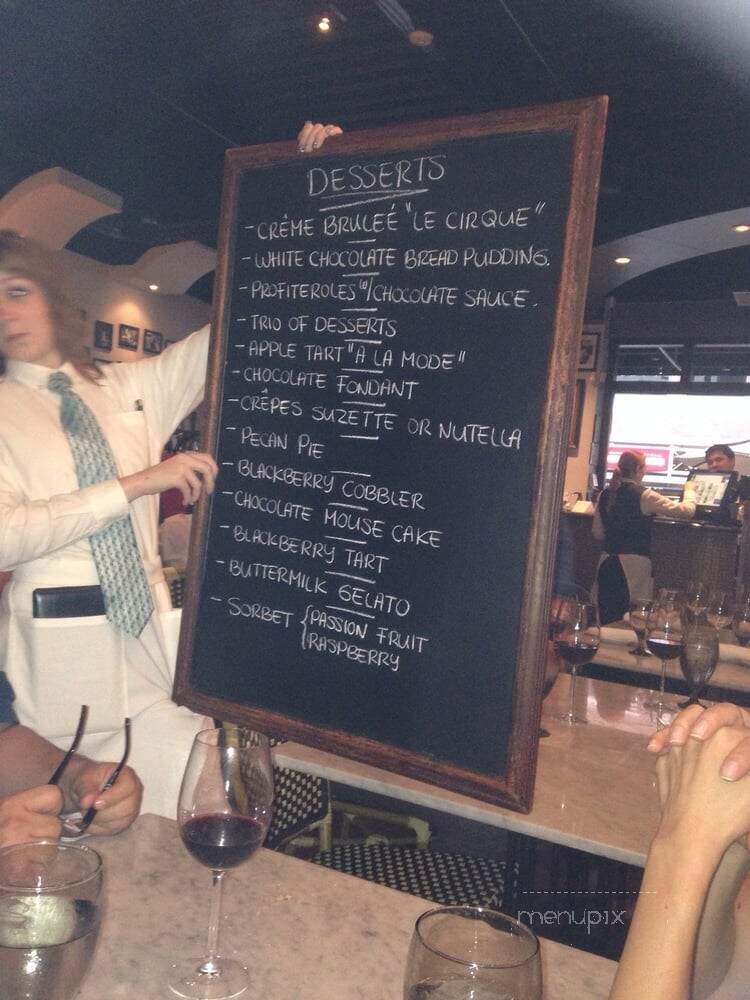 DESSERTS
- CRÊME BRULEÉ "LE CIRQUE"
- WHITE CHOCOLATE BREAD PUDDING.
- PROFITEROLES W/CHOCOLATE SAUCE.
- TRIO OF DESSERTS
- APPLE TART "A LA MODE"
- CHOCOLATE FONDANT
- CRÊPES SUZETTE OR NUTELLA
- PECAN PIE
- BLACKBERRY COBBLER
- CHOCOLATE MOUSE CAKE
- BLACKBERRY TART
- BUTTERMILK GELATO
- SORBET { PASSION FRUIT
RASPBERRY
menupix